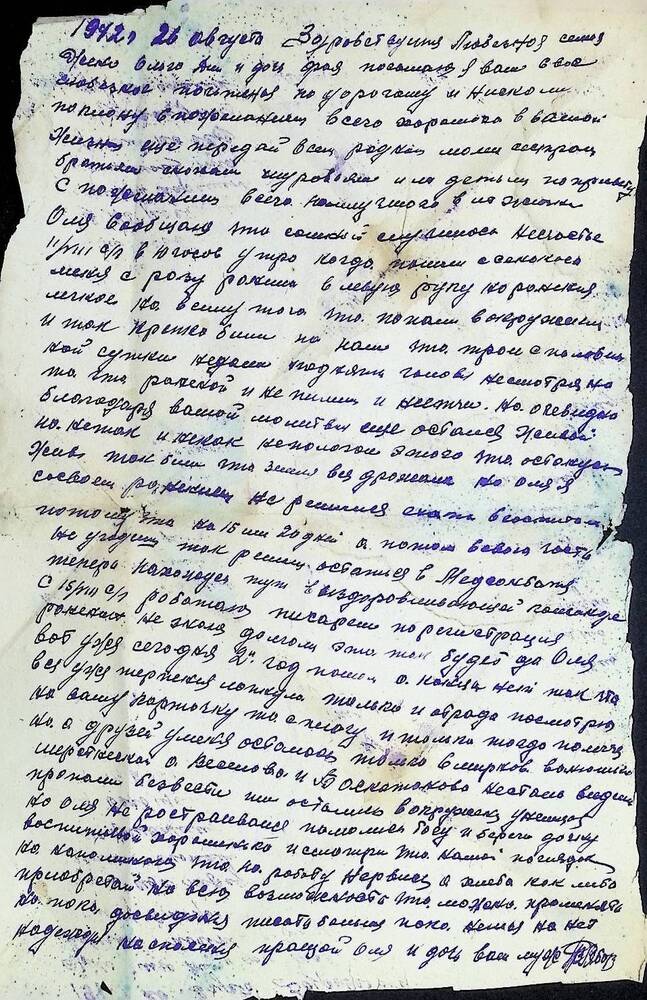 1942 г 26 августа Здравствуйте Любезная семья
Жена Ольга и дочь посылаю я вам свое
почтение по дорогому и низкому
поклону с пожеланием всего хорошего в вашей
жизни еще передай всем родным моим сестрам
братьям и их детям по привету
С пожеланием всего наилучшего в их жизни
Оля сообщаю что со мной случилось несчастье
11/VIII с/г в 10 часов утро когда пошли с
меня с разу ранило в левую руку но ранения
легкое ко всему того что попали в окружения
и так крепко били по нам что трои с половин
ной сутки не дали поднять головы несмотря на
то что раненой и не пили и не ели. но очевидно
благодаря вашой молитвы еще остался живой
но не как не пологал этого что остануся
жив так били что земля вся дрожала но Оля я
со своем ранением не решился ехать в госпиталь
потому что на 15 или 20 дней а потом в свою часть
не угодиш так решил остатся в Медсанбате
теперь нахожуся тут в выздоровливающей команде
С 15/VIII с/г работаю писарем по регистрация
раненых не знаю долголи это так будет да Оля
вот уже сегодня 2й год пошел а конца нет так что
все уже терпения лопнуло только и отрада посмотрю
на вашу карточку то и только тогда полегче
но а друзей у меня осталось только Смирнов
а Веселова и нестало видно
пропали безвести или остались в окружении
но Оля не растраевайся помолись богу и береги дочку
воспитывай хорошенько и смотри это наш последок
но напоминаю что на работу нервися а хлеба как либо
приобретай на всю возможность что можно променять
но пока досвиданья писать больше пока нечего но нет
надежды прощай Оля и дочь ваш муж